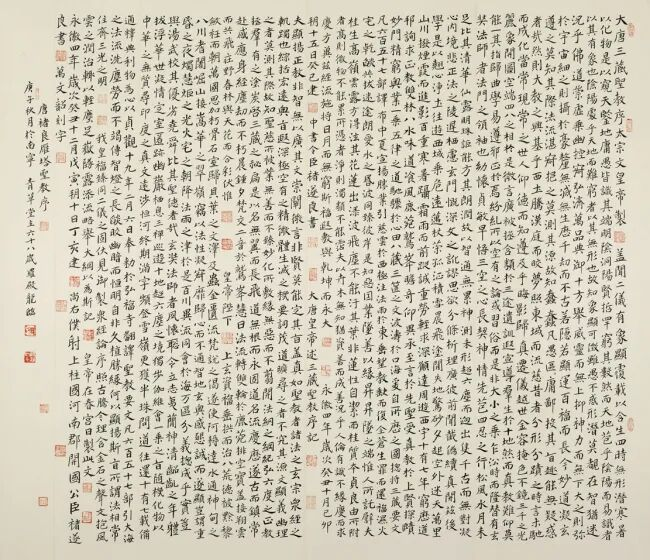 大唐三藏聖教序 太宗文皇帝製 蓋聞二儀有象顯覆載以含生四時無形潛寒暑
以化物是以窺天鑒地庸愚皆識其端明陰洞陽賢哲罕窮其數然而天地苞乎陰陽而易識者
以其有象也陰陽處乎天地而難窮者以其無形也故知象顯可徵雖愚不惑形潛莫覩在智猶迷
況乎佛道崇虛乘幽控寂弘濟萬品典御十方舉威靈而無上抑神力而無下大之則彌
於宇宙細之則攝於豪釐無滅無生歷千劫而不古若隱若顯運百福而長今妙道凝玄
遵之莫知其際法流湛寂挹之莫測其源故知蠢蠢凡愚區區庸鄙投其旨趣能無疑惑
者哉然則大教之興基乎西土騰漢庭而皎夢照東域而流慈昔者分形分跡之時言未馳
而成化當常現常之世人仰德而知遵及乎晦影歸真遷儀越世金容掩色不鏡三千之光
麗象開圖空端四八之相於是微言廣被拯含類於三途遺訓遐宣導群生於十地然而真教難仰莫
能一其指歸曲學易遵邪正於焉紛糺所以空有之論或習俗而是非大小之乘乍沿時而隆替有玄
奘法師者法門之領袖也幼懷貞敏早悟三空之心長契神情先苞四忍之行松風水月未
足比其清華仙露明珠詎能方其朗潤故以智通無累神測未形超六塵而迥出隻千古而無對凝
心內境悲正法之陵遲栖慮玄門慨深文之訛謬思欲分條析理廣彼前聞截偽續真開茲後
學是以翹心淨土往遊西域乘危遠邁杖策孤征積雪晨飛途間失地驚砂夕起空外迷天萬里
山川撥煙霞而進影百重寒暑躡霜雨而前蹤誠重勞輕求深願達周遊西宇十有七年窮歷道
邦詢求正教雙林八水味道湌風鹿菀鷲峯瞻奇仰異承至言於先聖受真教於上賢探賾
妙門精窮奧業一乘五律之道馳驟於心田八藏三篋之文波濤於口海爰自所歷之國總將三藏要文
凡六百五十七部譯布中夏宣揚勝業引慈雲於西極注法雨於東垂聖教缺而復全蒼生罪而還福濕火
宅之乾焰共拔迷途朗愛水之昏波同臻彼岸是知惡因業墜善以緣昇昇墜之端惟人所託譬夫
桂生高嶺雲露方得泫其花蓮出淥波飛塵不能汙其葉非蓮性自潔而桂質本貞良由所附
者高則微物不能累所憑者淨則濁類不能霑夫以卉木無知猶資善而成善況乎人倫有識不緣慶而求
慶方冀茲經流施將日月而無窮斯福遐敷與乾坤而永大 永徽四年歲次癸丑十月己卯
朔十五日癸巳建 中書令臣褚遂良書 大唐皇帝述三藏聖教序記
夫顯揚正教非智無以廣其文崇闡微言非賢莫能定其旨蓋真如聖教者諸法之玄宗眾經之
軌躅也綜括宏遠奧旨遐深極空有之精微體生滅之機要詞茂道曠尋之者不究其源文顯義幽理之
者莫測其際故知聖慈所被業無善而不臻妙化所敷緣無惡而不翦開法網之綱紀弘六度之正教
拯群有之塗炭啓三藏之祕扃是以名無翼而長飛道無根而永固道名流慶歷遂古而鎮常
赴感應身經塵劫而不朽晨鐘夕梵交二音於鷲峯慧日法流轉雙輪於鹿菀排空寶蓋接翔雲
而共飛莊野春林與天花而合彩伏惟 皇帝陛下上玄資福垂拱而治八荒德被黔黎
斂衽而朝萬國恩加朽骨石室歸貝葉之文澤及昆蟲金匱流梵說之偈遂使阿耨達水通神甸之
八川耆闍崛山接嵩華之翠嶺竊以法性凝寂靡歸心而不通智地玄奧感懇誠而遂顯豈謂重
昏之夜燭慧炬之光火宅之朝降法雨之澤於是百川異流同會於海萬區分義總成乎實豈
與湯武校其優劣堯舜比其聖德者哉玄奘法師者夙懷聰令立志夷簡神清齠齔之年體
拔浮華世凝情定室匿跡幽巖栖息三禪巡遊十地超六塵之境獨步伽維會一乘之旨隨機化物以
中華之無質尋印度之真文遠涉恒河終期滿字頻登雪嶺更獲半珠問道往還十有七載備
通釋典利物為心以貞觀十九年二月六日奉勅於弘福寺翻譯聖教要文凡六百五十七部引大海
之法流洗塵勞而不竭傳智燈之長焰皎幽暗而恒明自非久植勝緣何以顯揚斯旨所謂法相常
住齊三光之明 我皇福臻同二儀之固伏見御製眾經論序照古騰今理含金石之聲文抱風
雲之潤治輒以輕塵足嶽墜露添流略舉大綱以為斯記 皇帝在春宮日製此文
永徽四年歲次癸丑十二月戊寅朔十日丁亥建 尚書右僕射上柱國河南郡開國公臣褚遂
良書 萬文韶刻字
唐褚遂良雁塔聖教序
庚子秋月於南寧 青草堂主六十八歲羅殿龍臨